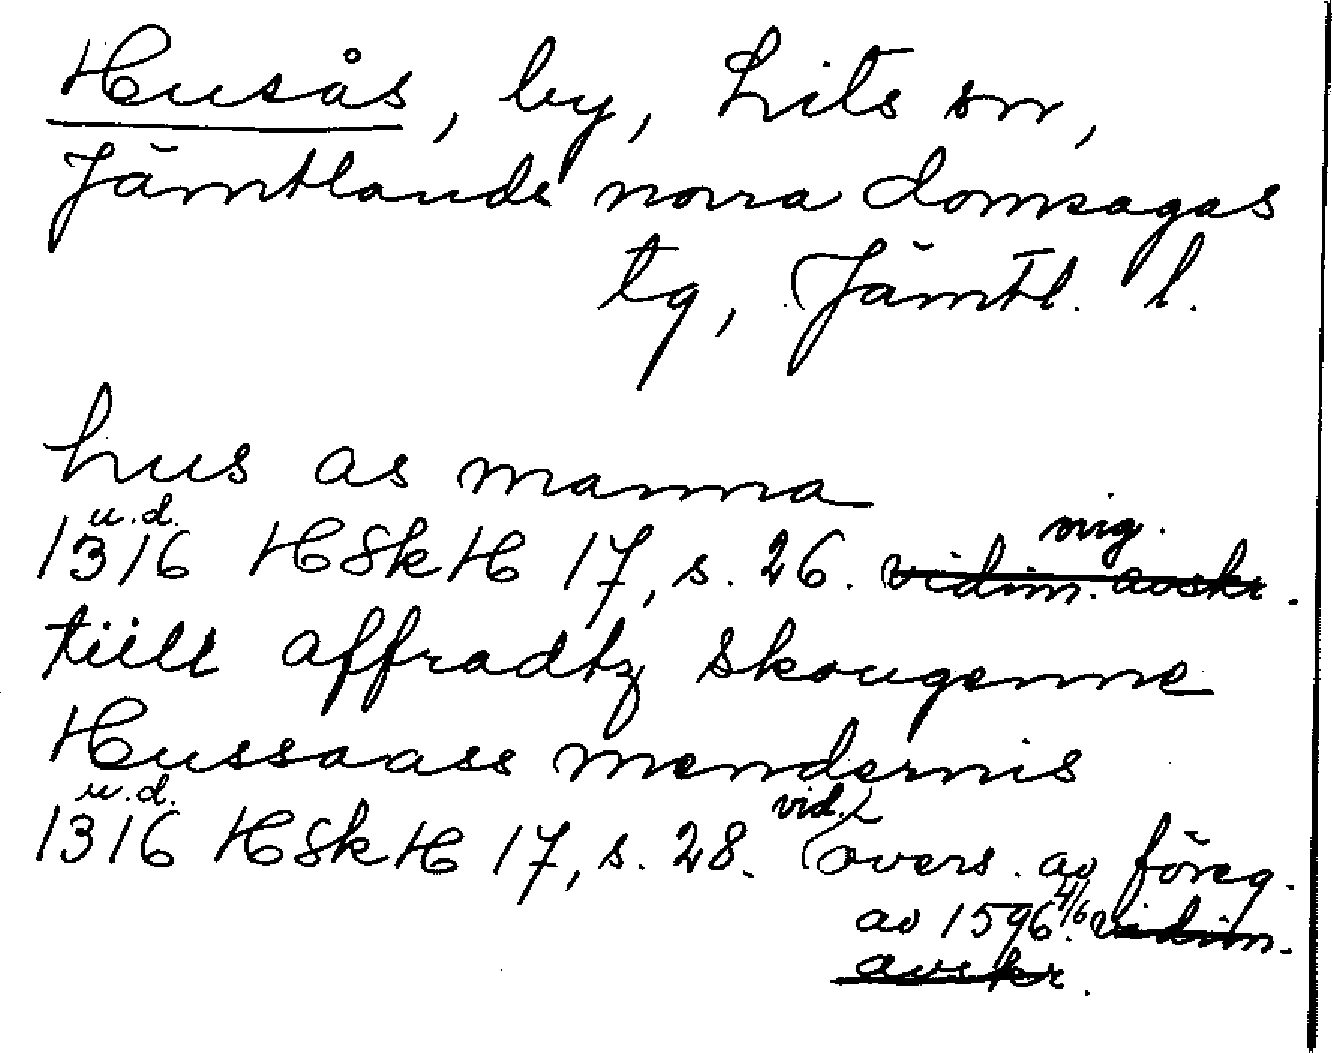 Husås, by, Lits sn,
Jämtlands norra domsagas
tg, Jämtl. l.
hus as manna
u.d.
1316 HSkH 17, s. 26. vidim. avskr.
till affradtz skougenne
Hussaass mendernis
u.d.
vid.
1316 HSkH 17, s. 28. (övers. av föreg.
av 1596 4/6. vidim.
avskr.